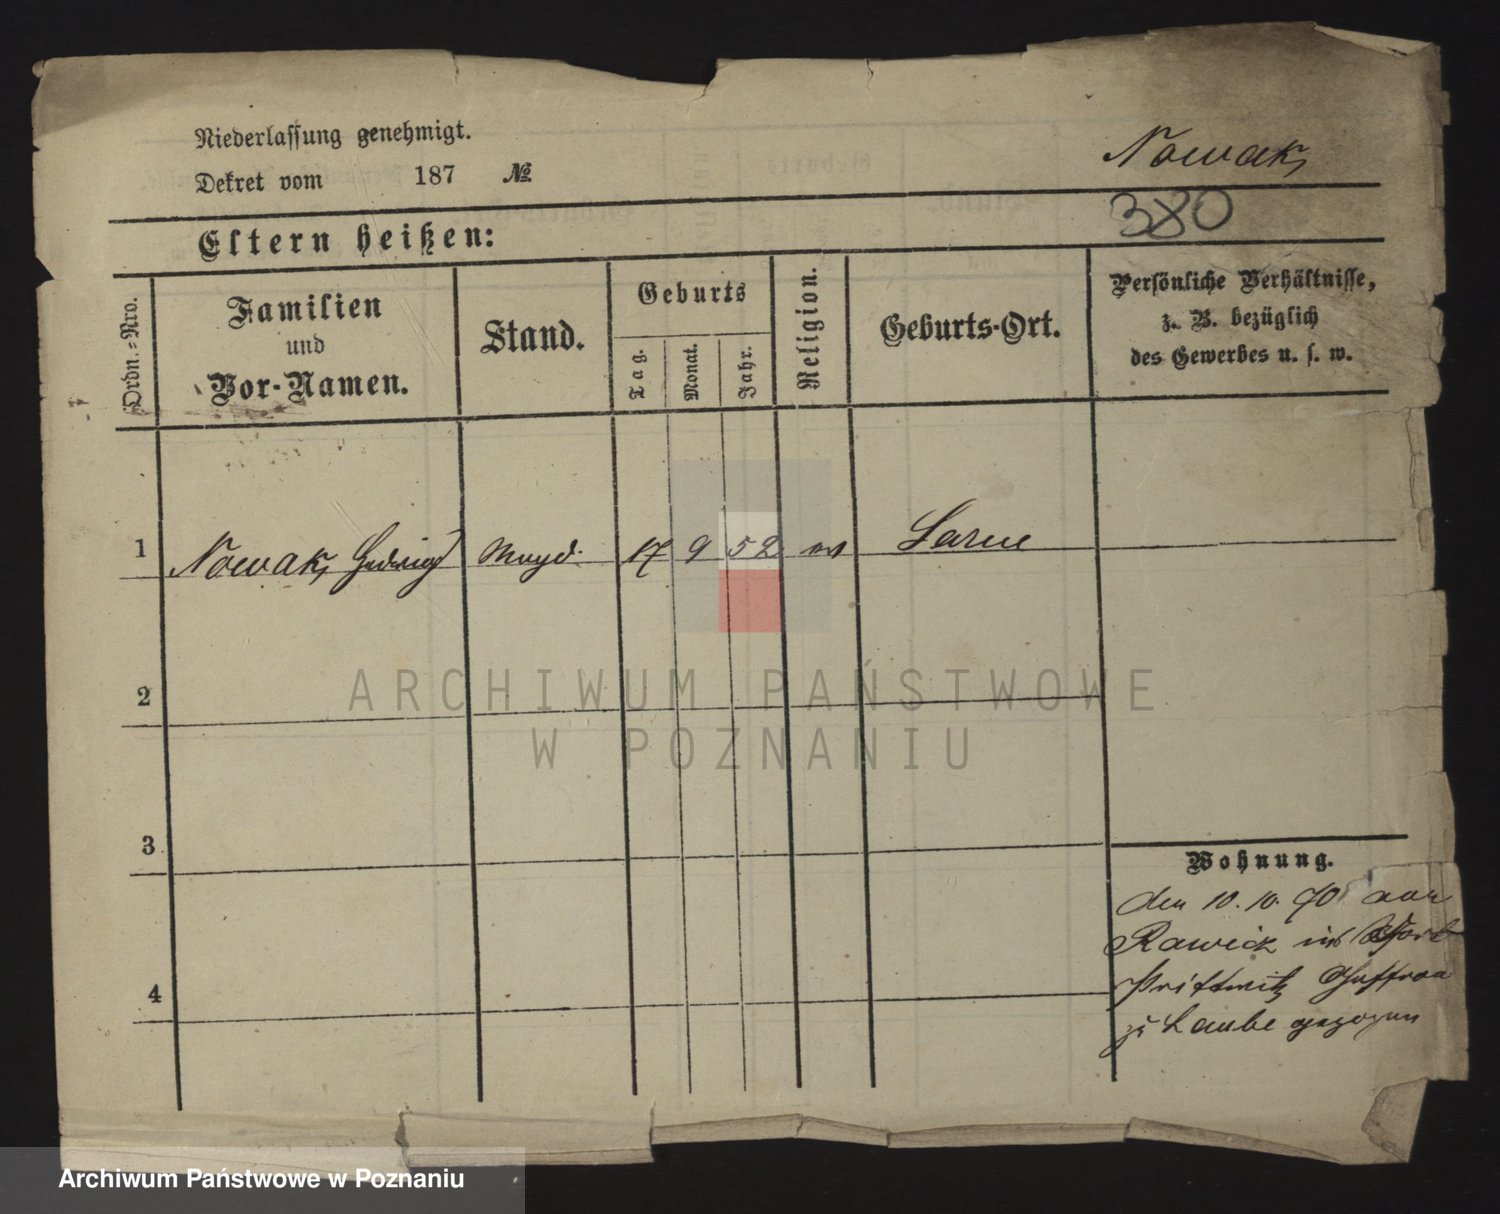 Niederlassung genehmigt.
Dekret vom 187 №
Nowak
380
Eltern heißen:
Ordn.-Nro.
Familien
und
Vor-Namen.
Stand.
Geburts
Tag.
Monat.
Jahr.
Religion.
Geburts-Ort.
Persönliche Verhältnisse,
z. B. bezüglich
des Gewerbes u. s. w.
1 Nowak, Hedwig Magd. 17 9 52 Sarne
2
3
4
Wohnung.
den 10. 10. 70 von
Rawicz ins
Prittwitz Gaffron
zu Laube gezogen
ARCHIWUM PAŃSTWOWE
W POZNANIU
Archiwum Państwowe w Poznaniu